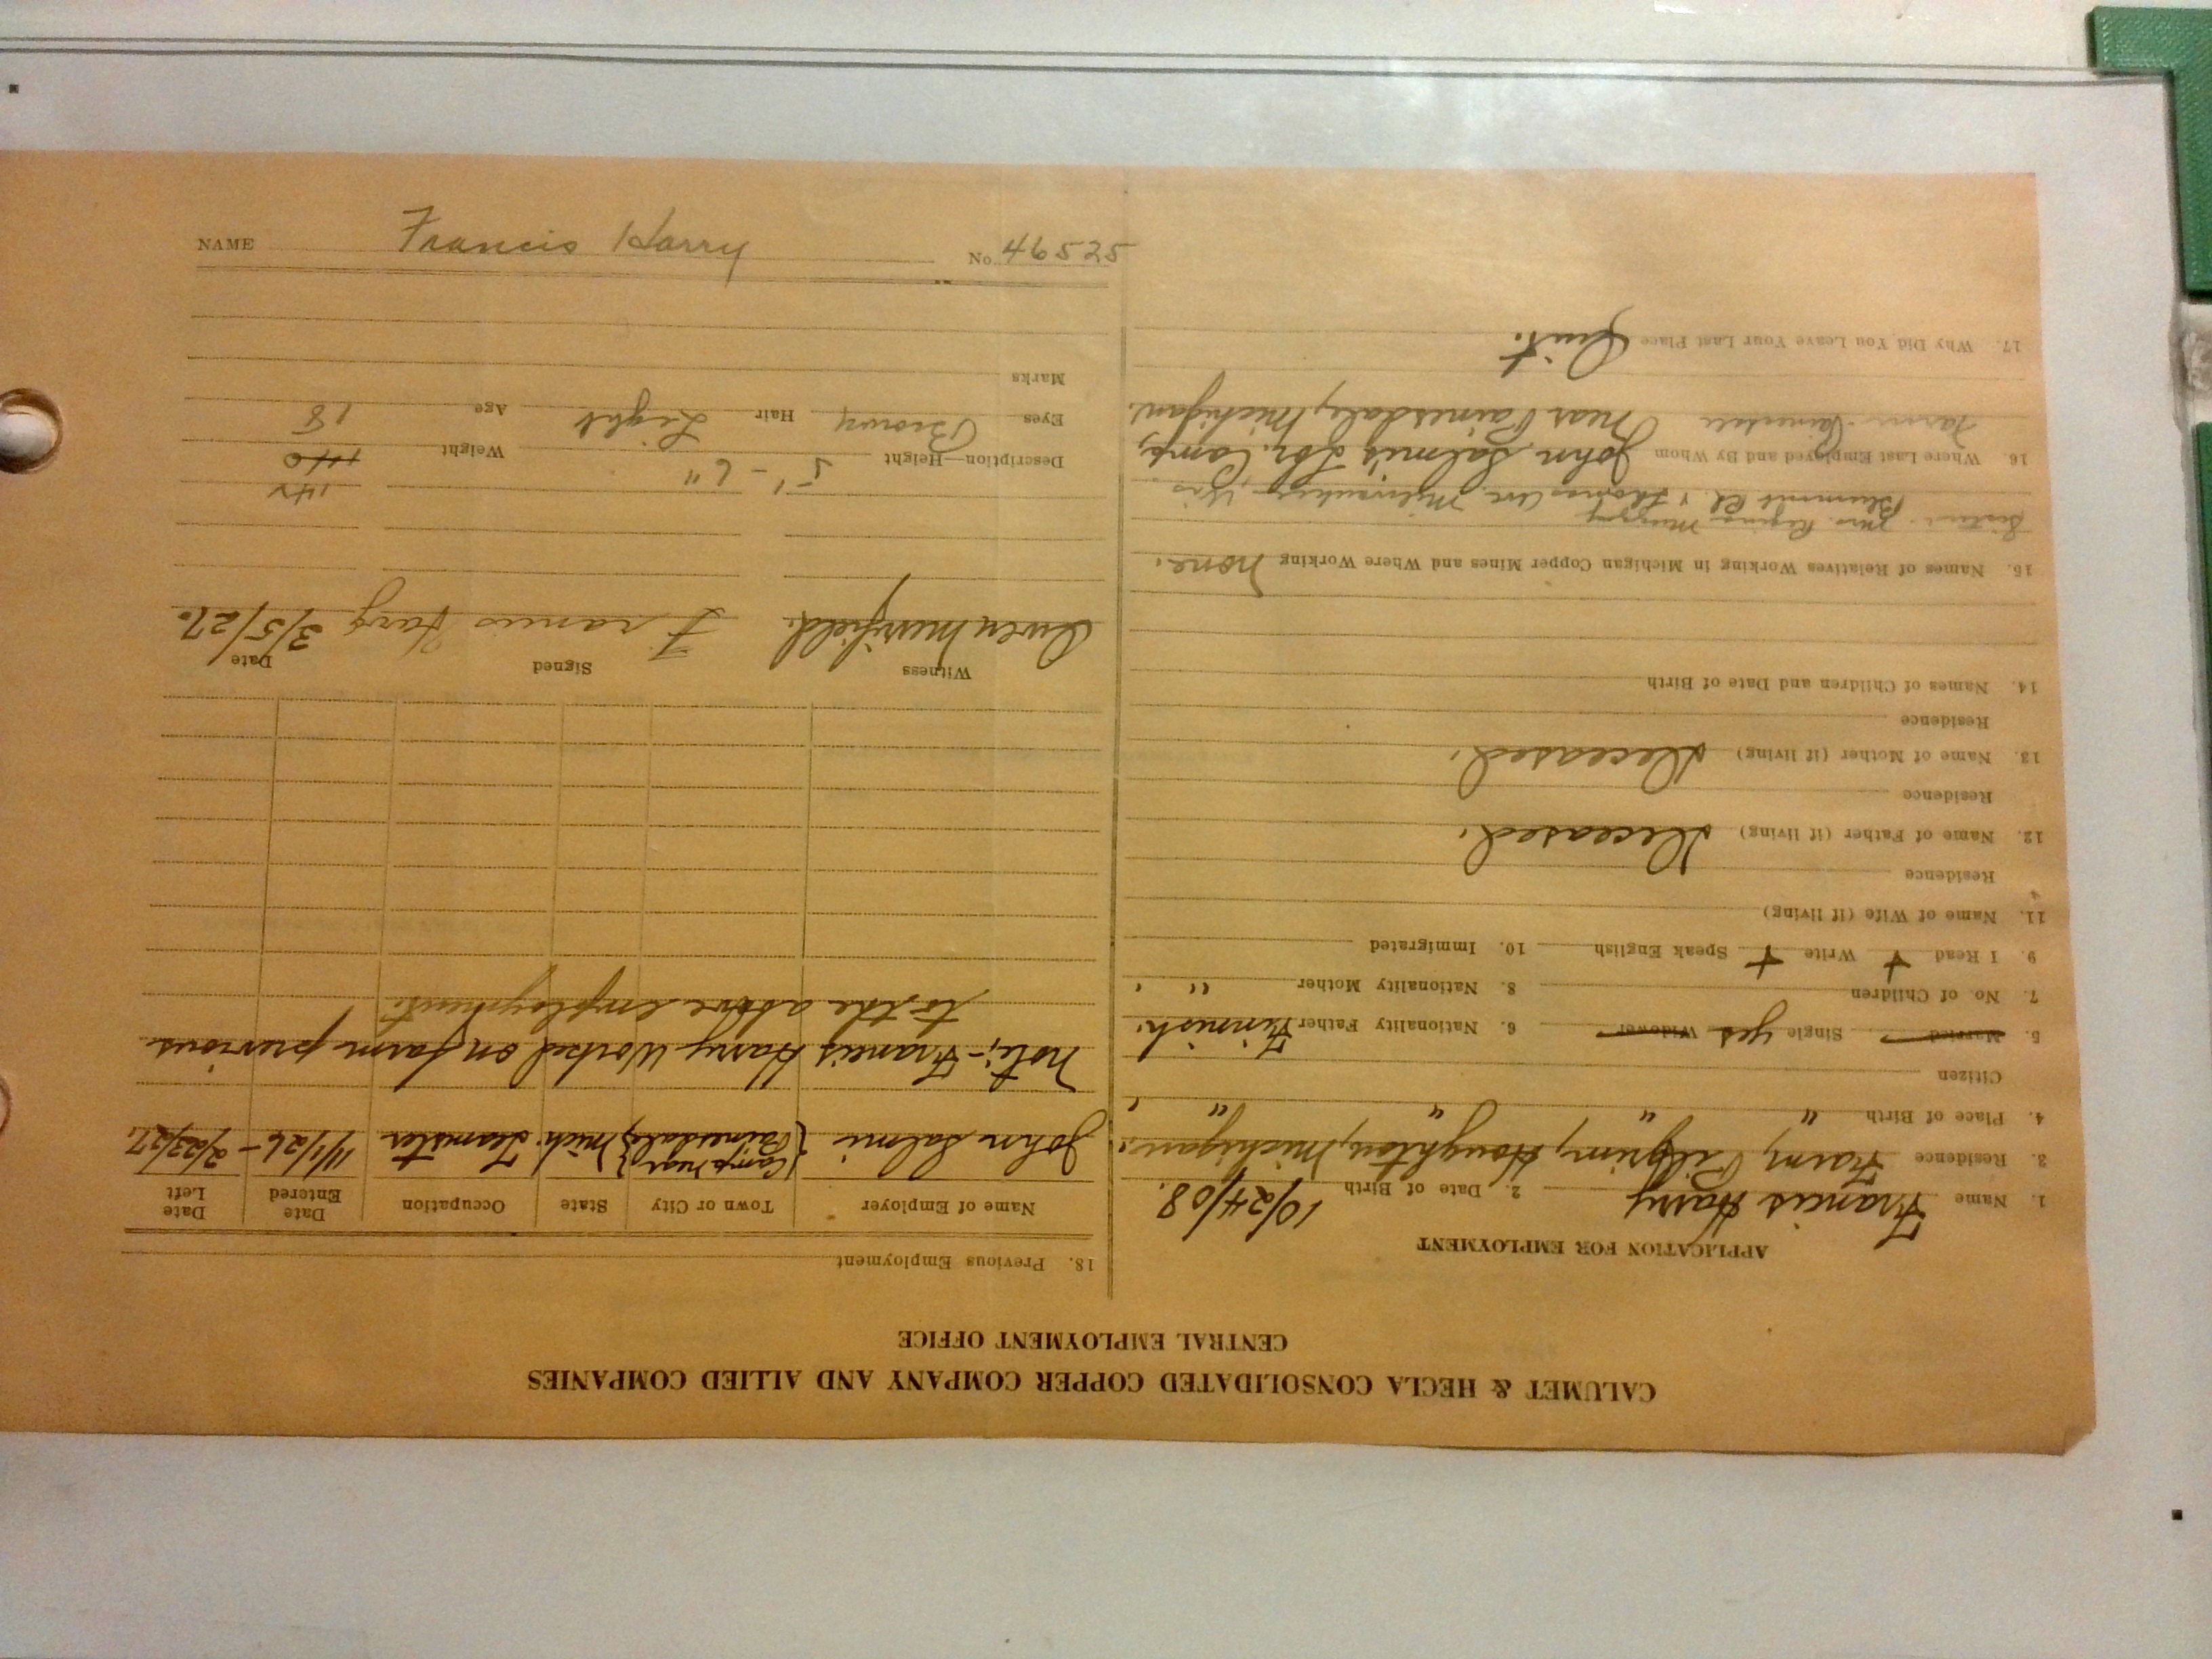 CALUMET & HECLA CONSOLIDATED COPPER COMPANY AND ALLIED COMPANIES
CENTRAL EMPLOYMENT OFFICE
APPLICATION FOR EMPLOYMENT
1. Name Francis Harry 2. Date of Birth 10/24/08.
3. Residence Farm, Pilgrim, Houghton, Michigan.
4. Place of Birth " " " " "
Citizen
5. Married Single yes Widower 6. Nationality Father Finnish.
7. No. of Children 8. Nationality Mother "
9. I Read + Write + Speak English 10. Immigrated
11. Name of Wife (if living)
Residence
12. Name of Father (if living) Deceased.
Residence
13. Name of Mother (if living) Deceased.
Residence
14. Names of Children and Date of Birth
15. Names of Relatives Working in Michigan Copper Mines and Where Working None.
Sister - Mrs. Regina
Rd. & Thomas Ave Milwaukee, Wis.
16. Where Last Employed and By Whom John Salmi's Lbr. Camp,
Farm - Painesdale near Painesdale, Michigan.
17. Why Did You Leave Your Last Place Quit.
18. Previous Employment
Name of Employer Town or City State Occupation Date Entered Date Left
John Salmi {Camp near Painesdale} Mich. Teamster 11/1/26 - 2/23/27.
Note;- Francis Harry Worked on farm previous
to the above employment.
Witness Signed Date
Owen Merrifield. Francis Harry 3/5/27.
142
Description—Height 5' - 6" Weight 140
Eyes Brown Hair Light Age 18
Marks
NAME Francis Harry No. 46525